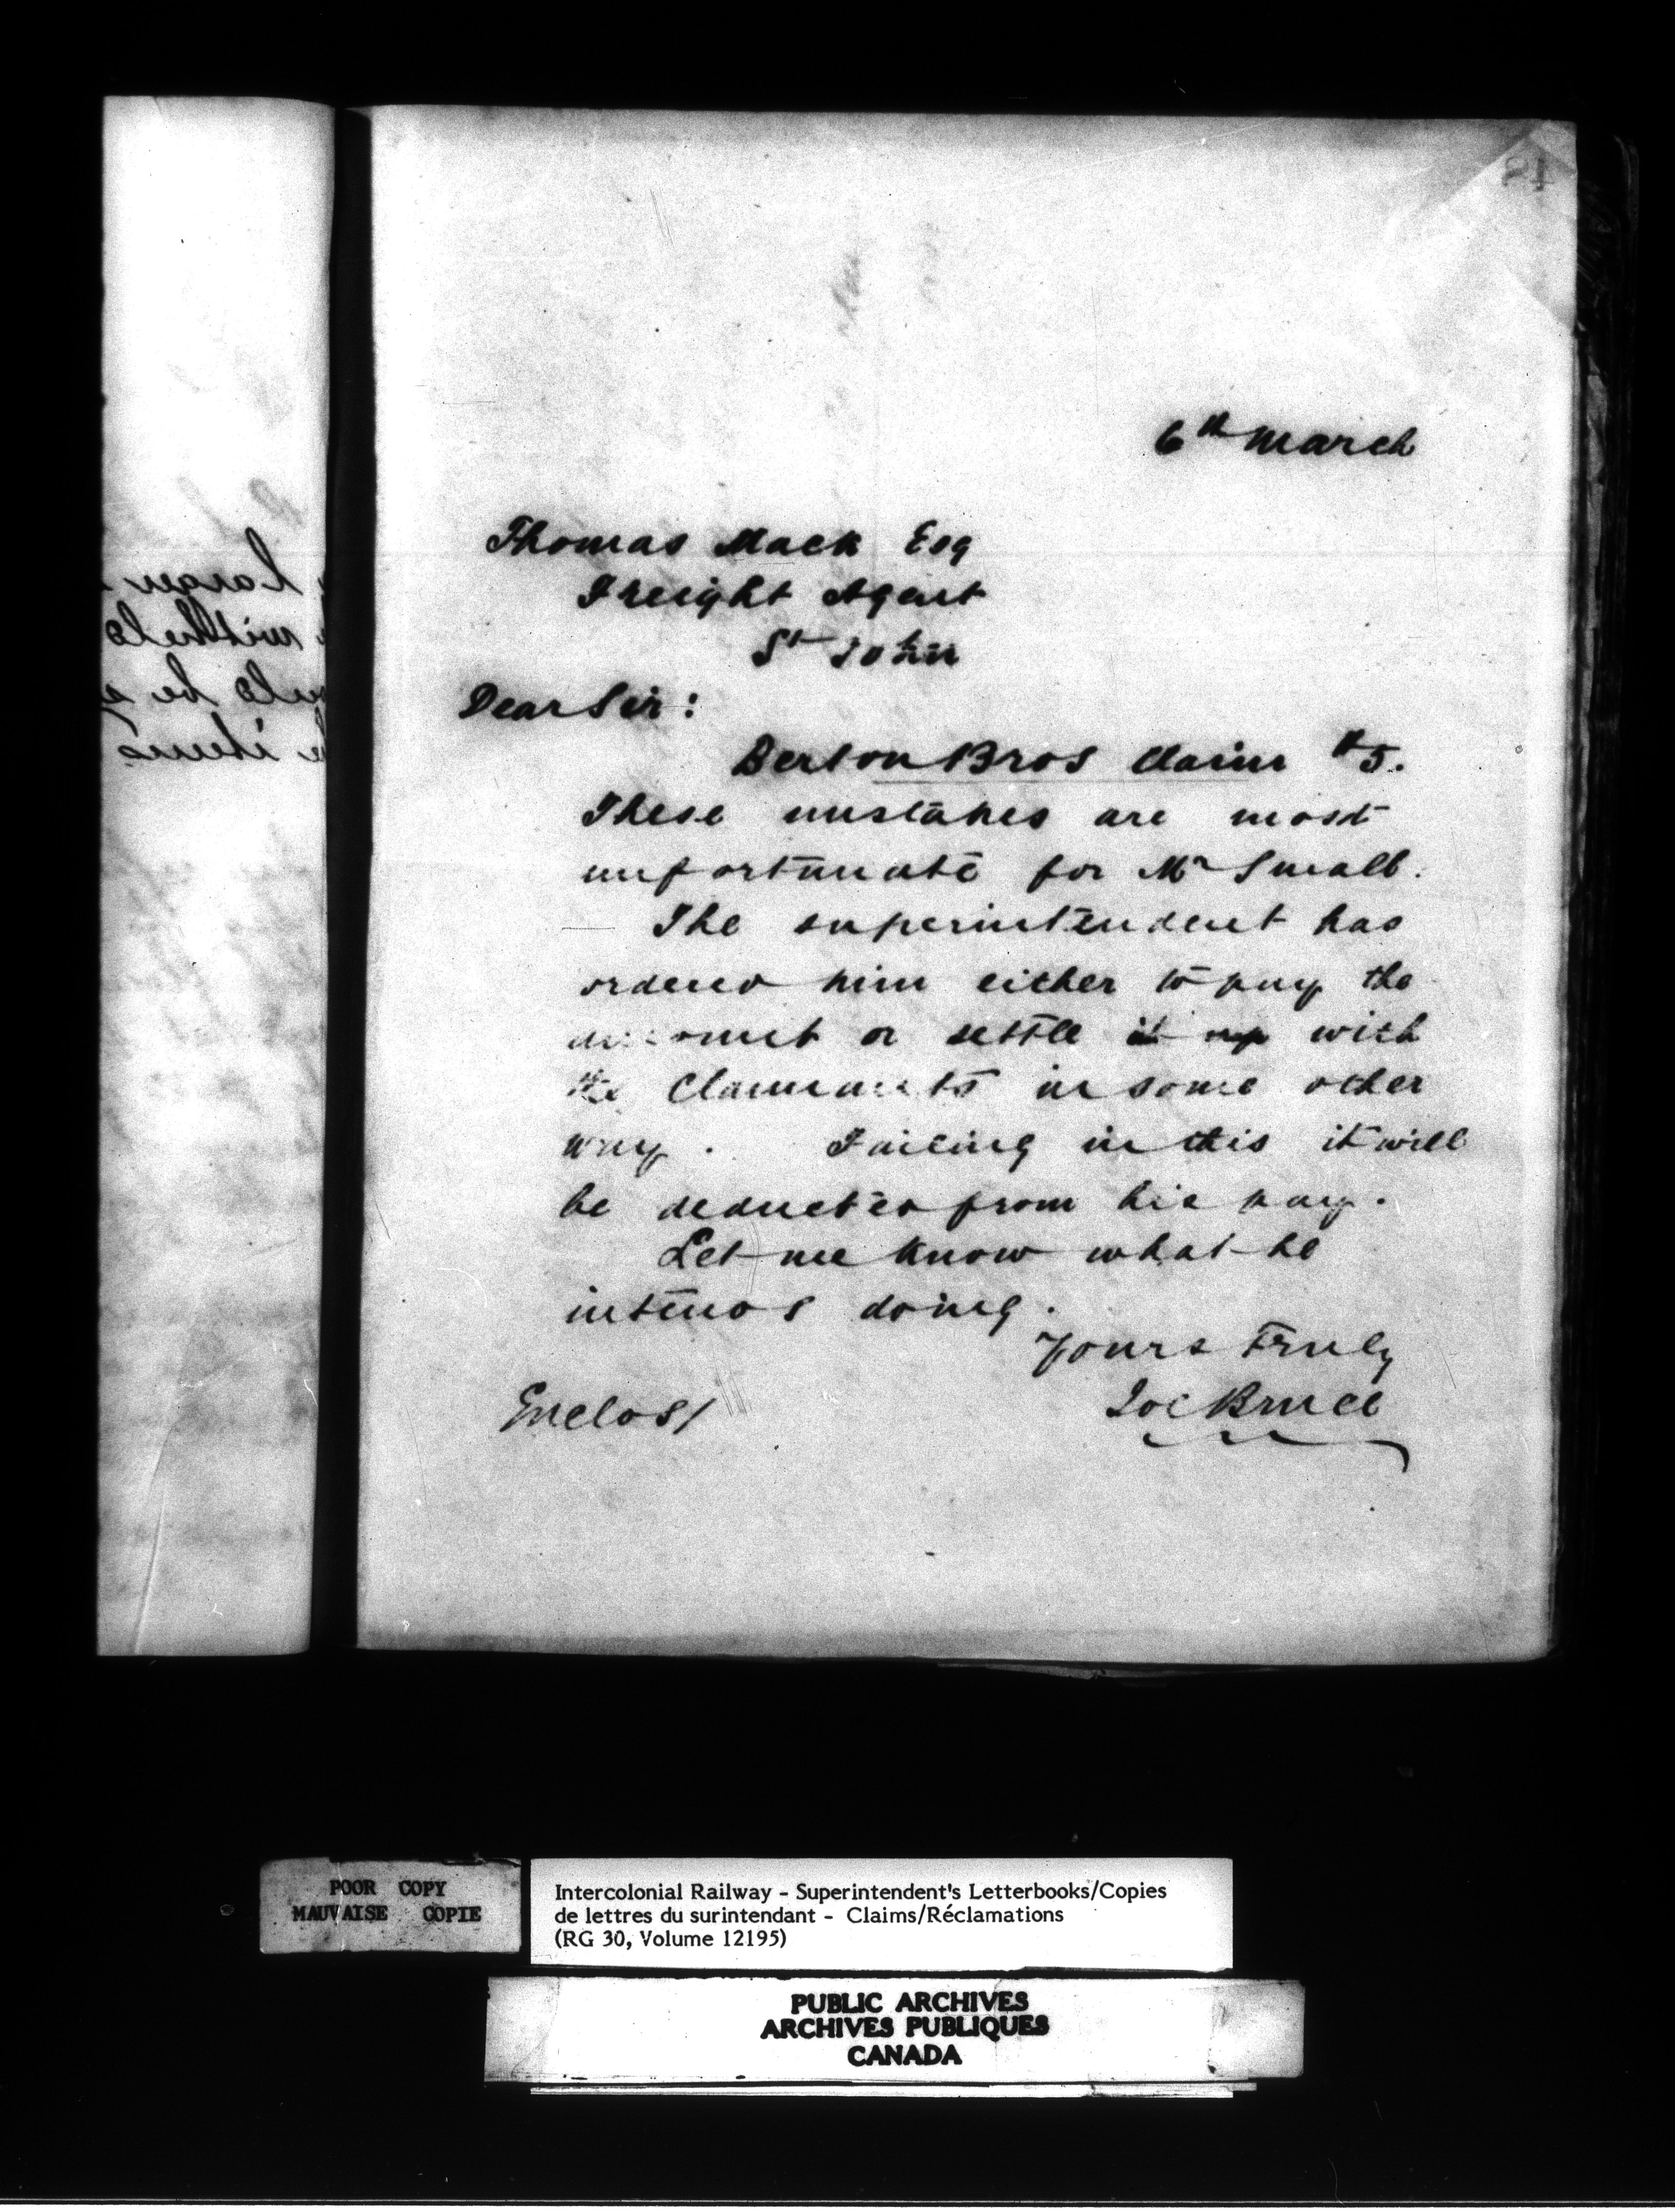 6th March
Thomas Mack Esq
Freight Agent
St John
Dear Sir:
Berton Bros Claim #5.
These mistakes are most
unfortunate for Mr Small.
The superintendent has
ordered him either to pay the
or settle it up with
the Claimants in some other
way. Failing in this it will
be deducted from his pay.
Let me know what he
intends doing.
Yours Truly
Bruce
Enclos/
POOR COPY
MAUVAISE COPIE
Intercolonial Railway - Superintendent's Letterbooks/Copies
de lettres du surintendant - Claims/Réclamations
(RG 30, Volume 12195)
PUBLIC ARCHIVES
ARCHIVES PUBLIQUES
CANADA